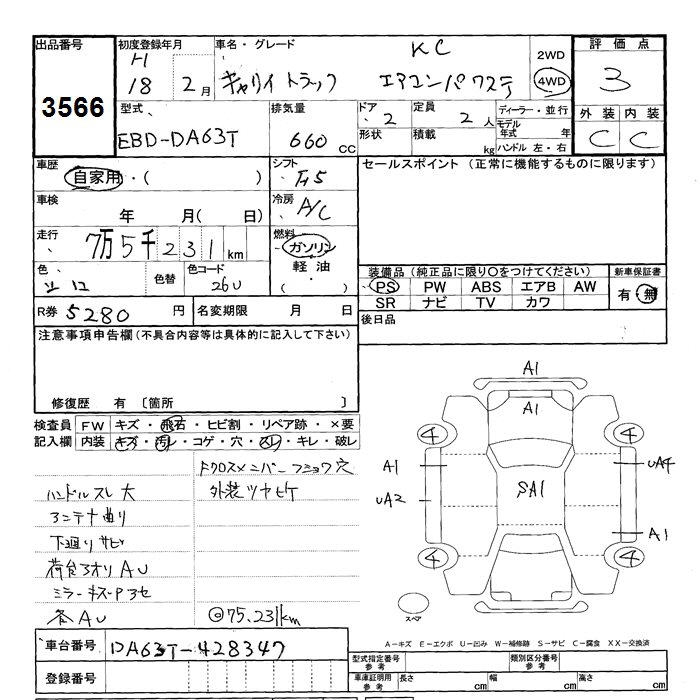 出品番号 初度登録年月 車名・グレード 評価点
3566
H 18 2月 キャリイ トラック KC エアコンパワステ 2WD 4WD 3
型式 排気量 ドア 定員 ディーラー・並行 外装 内装
EBD-DA63T 660 CC 2 2人 モデル年式 年 C C
形状 積載 kg ハンドル 左・右
車歴 自家用・( ) シフト F5 セールスポイント (正常に機能するものに限ります)
車検 年 月( 日) 冷房 A/C
走行 7万5千231km 燃料 ガソリン 軽油 ( ・ )
色 シロ 色替 色コード 26U
装備品 (純正品に限り○をつけてください) 新車保証書
PS PW ABS エアB AW 有・無
SR ナビ TV カワ
R券 5280 円 名変期限 月 日 後日品
注意事項申告欄 (不具合内容等は具体的に記入して下さい)
修復歴 有 〔箇所 〕
検査員 FW キズ・飛石・ヒビ割・リペア跡・×要
記入欄 内装 キズ・汚レ・コゲ・穴・スレ・キレ・破レ
Fクロスメンバーフショク穴
ハンドルスレ大 外装ツヤヒケ
アンテナ曲り
下廻りサビ
荷台アオリAU
ミラーキズ
各AU ◎75.231km
A1
A1
4 4
A1 UA4
UA2 SA1
A1
4 4
スペア
A-キズ E-エクボ U-凹み W-補修跡 S-サビ C-腐食 XX-交換済
車台番号 DA63T-428347
登録番号
型式指定番号 参考 類別区分番号 参考
車庫証明用 参考 長さ cm 幅 cm 高さ cm